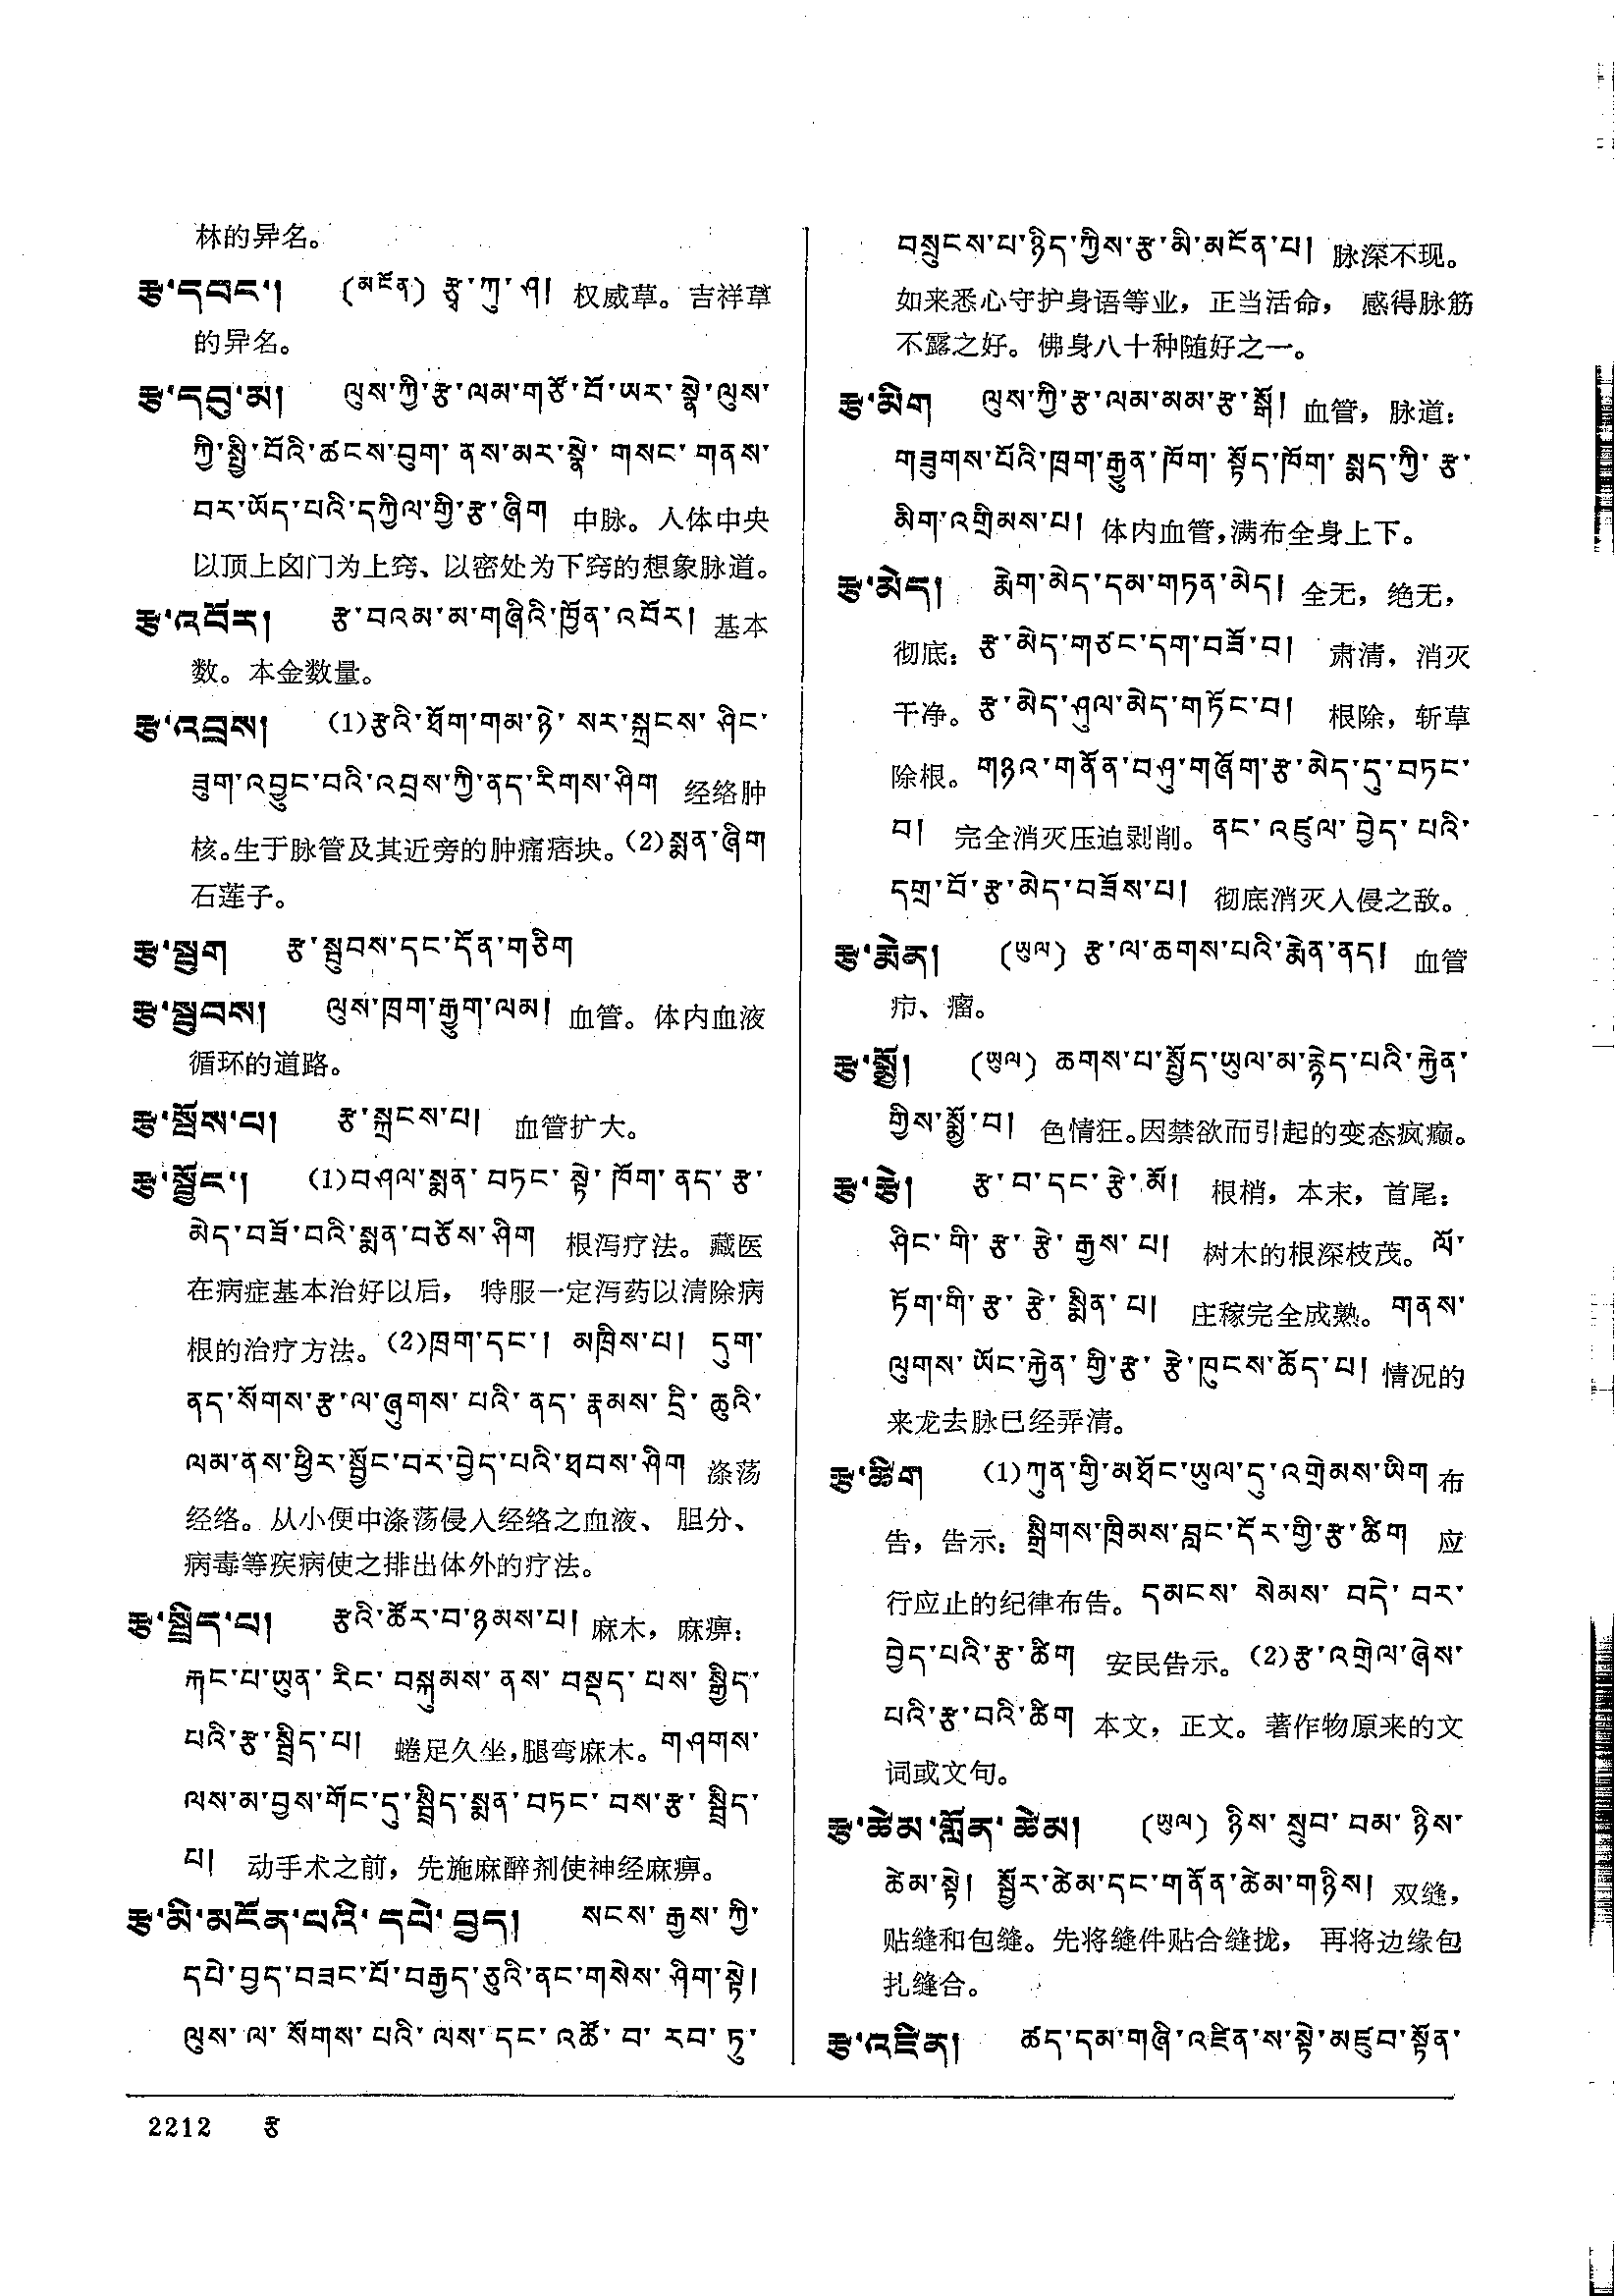 林的异名。
རྩ་དབང་། (མངོན) རྩྭ་ཀུ་ཤ། 权威草。吉祥草
的异名。
རྩ་དབུ་མ། ལུས་ཀྱི་རྩ་ལམ་གཙོ་བོ་ཡར་སྣེ་ལུས་
ཀྱི་སྤྱི་བོའི་ཚངས་བུག་ནས་མར་སྣེ་གསང་གནས་
བར་ཡོད་པའི་དཀྱིལ་གྱི་རྩ་ཞིག 中脉。人体中央
以顶上囟门为上窍、以密处为下窍的想象脉道。
རྩ་འབོར། རྩ་བའམ་མ་གཞིའི་ཁྱོན་འབོར། 基本
数。本金数量。
རྩ་འབྲས། (1)རྩའི་ཐོག་གམ་ཉེ་སར་སྐྲངས་ཤིང་
ཟུག་འབྱུང་བའི་འབྲས་ཀྱི་ནད་རིགས་ཤིག 经络肿
核。生于脉管及其近旁的肿瘤痞块。(2)སྨན་ཞིག
石莲子。
རྩ་སྦུག རྩ་སྦུབས་དང་དོན་གཅིག
རྩ་སྦུབས། ལུས་ཁྲག་རྒྱུག་ལམ། 血管。体内血液
循环的道路。
རྩ་སྦོས་པ། རྩ་སྐྲངས་པ། 血管扩大。
རྩ་སྦྱོང་། (1)བཤལ་སྨན་བཏང་སྟེ་ཁོག་ནད་རྩ་
མེད་བཟོ་བའི་སྨན་བཅོས་ཤིག 根泻疗法。藏医
在病症基本治好以后，特服一定泻药以清除病
根的治疗方法。(2)ཁྲག་དང་། མཁྲིས་པ། དུག་
ནད་སོགས་རྩ་ལ་ཞུགས་པའི་ནད་རྣམས་དྲི་ཆུའི་
ལམ་ནས་ཕྱིར་སྦྱོང་བར་བྱེད་པའི་ཐབས་ཤིག 涤荡
经络。从小便中涤荡侵入经络之血液、胆分、
病毒等疾病使之排出体外的疗法。
རྩ་སྦྲིད་པ། རྩའི་ཚོར་བ་ཉམས་པ། 麻木，麻痹：
རྐང་པ་ཡུན་རིང་བསྐུམས་ནས་བསྡད་པས་སྒྱིད་
པའི་རྩ་སྦྲིད་པ། 蜷足久坐，腿弯麻木。གཤགས་
ལས་མ་བྱས་གོང་དུ་སྦྲིད་སྨན་བཏང་བས་རྩ་སྦྲིད་
པ། 动手术之前，先施麻醉剂使神经麻痹。
རྩ་མི་མངོན་པའི་དཔེ་བྱད། སངས་རྒྱས་ཀྱི་
དཔེ་བྱད་བཟང་པོ་བརྒྱད་ཅུའི་ནང་གསེས་ཤིག་སྟེ།
ལུས་ལ་སོགས་པའི་ལས་དང་འཚོ་བ་རབ་ཏུ་
བསྲུངས་པ་ཉིད་ཀྱིས་རྩ་མི་མངོན་པ། 脉深不现。
如来悉心守护身语等业，正当活命，感得脉筋
不露之好。佛身八十种随好之一。
རྩ་མིག ལུས་ཀྱི་རྩ་ལམ་མམ་རྩ་སྒོ། 血管，脉道：
གཟུགས་པོའི་ཁྲག་རྒྱུན་ཁོག་སྟོད་ཁོག་སྨད་ཀྱི་རྩ་
མིག་འགྲིམས་པ། 体内血管，满布全身上下。
རྩ་མེད། རྨེག་མེད་དམ་གཏན་མེད། 全无，绝无，
彻底：རྩ་མེད་གཙང་དག་བཟོ་བ། 肃清，消灭
干净。རྩ་མེད་ཤུལ་མེད་གཏོང་བ། 根除，斩草
除根。གཉའ་གནོན་བཤུ་གཞོག་རྩ་མེད་དུ་བཏང་
བ། 完全消灭压迫剥削。ནང་འཛུལ་བྱེད་པའི་
དགྲ་བོ་རྩ་མེད་བཟོས་པ། 彻底消灭入侵之敌。
རྩ་རྨེན། (ཡུལ) རྩ་ལ་ཆགས་པའི་རྨེན་ནད། 血管
疖、瘤。
རྩ་སྨྱོ། (ཡུལ) ཆགས་པ་སྤྱོད་ཡུལ་མ་རྙེད་པའི་རྐྱེན་
གྱིས་སྨྱོ་བ། 色情狂。因禁欲而引起的变态疯癫。
རྩ་རྩེ། རྩ་བ་དང་རྩེ་མོ། 根梢，本末，首尾：
ཤིང་གི་རྩ་རྩེ་རྒྱས་པ། 树木的根深枝茂。ལོ་
ཏོག་གི་རྩ་རྩེ་སྨིན་པ། 庄稼完全成熟。གནས་
ལུགས་ཡོང་རྐྱེན་གྱི་རྩ་རྩེ་ཁུངས་ཆོད་པ། 情况的
来龙去脉已经弄清。
རྩ་ཚིག (1)ཀུན་གྱི་མཐོང་ཡུལ་དུ་འགྲེམས་ཡིག 布
告，告示：སྒྲིགས་ཁྲིམས་བླང་དོར་གྱི་རྩ་ཚིག 应
行应止的纪律布告。དམངས་སེམས་བདེ་བར་
བྱེད་པའི་རྩ་ཚིག 安民告示。(2)རྩ་འགྲེལ་ཞེས་
པའི་རྩ་བའི་ཚིག 本文，正文。著作物原来的文
词或文句。
རྩ་ཚེམ་ཀློན་ཚེམ། (ཡུལ) ཉིས་སྲུབ་བམ་ཉིས་
ཚེམ་སྟེ། སྦྱོར་ཚེམ་དང་གནོན་ཚེམ་གཉིས། 双缝，
贴缝和包缝。先将缝件贴合缝拢，再将边缘包
扎缝合。
རྩ་འཛིན། ཚད་དམ་གཞི་འཛིན་ས་སྟེ་མཛུབ་སྟོན་
2212 རྩ